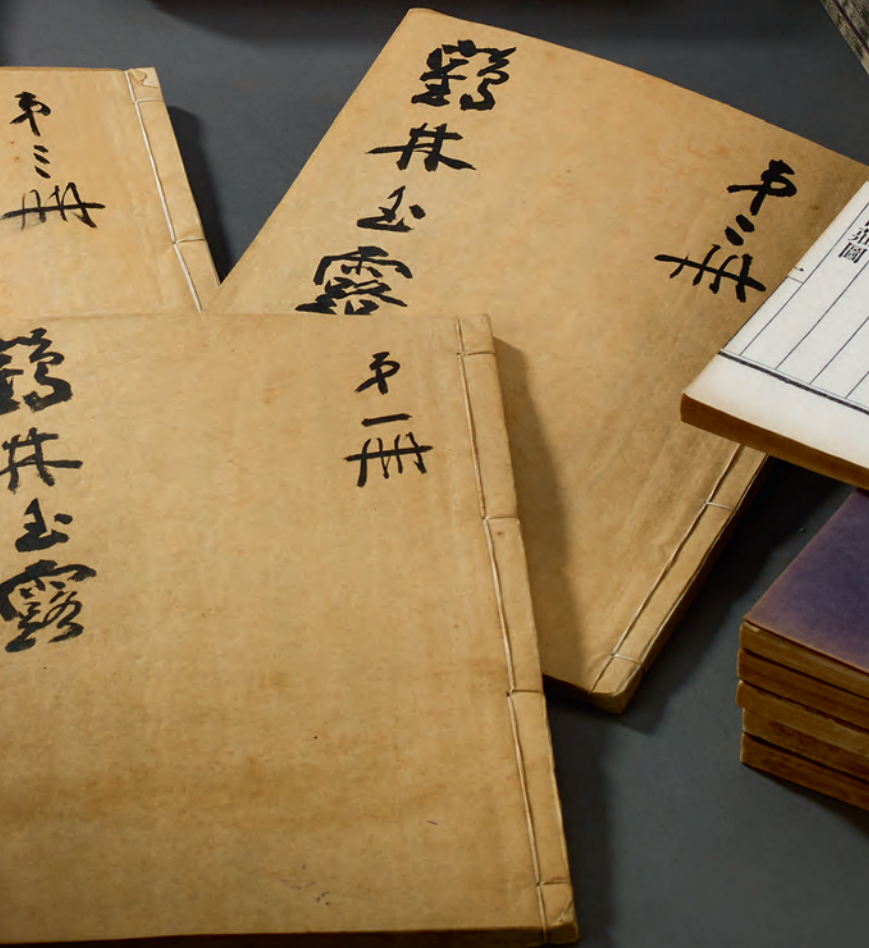 第三冊
鶴林玉露
第二冊
鶴林玉露
第一冊
圖